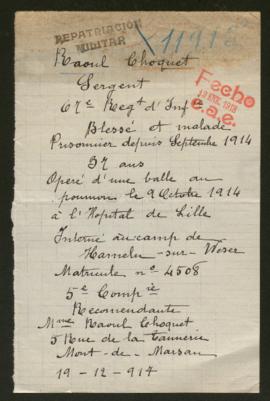 REPATRIACION
MILITAR
11916
Raoul Choquet
Fecho
e.a.e.
Sergent
67e Regt d'Infie
Blessé et malade
Prisonnier depuis Septembre 1914
37 ans
Opéré d'une balle au
poumon le 9 Octobre 1914
à l'Hopital de Lille
Interné au camp de
Hameln-sur-Weser
Matricule no-4508
5e Compie
Recomendante
Mme Raoul Choquet
5 Rue de la Tannerie
Mont-de-Marsan
19-12-917